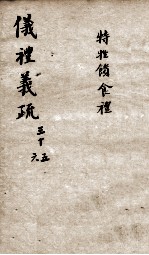 特牲饋食禮
儀禮義疏
三十五
六